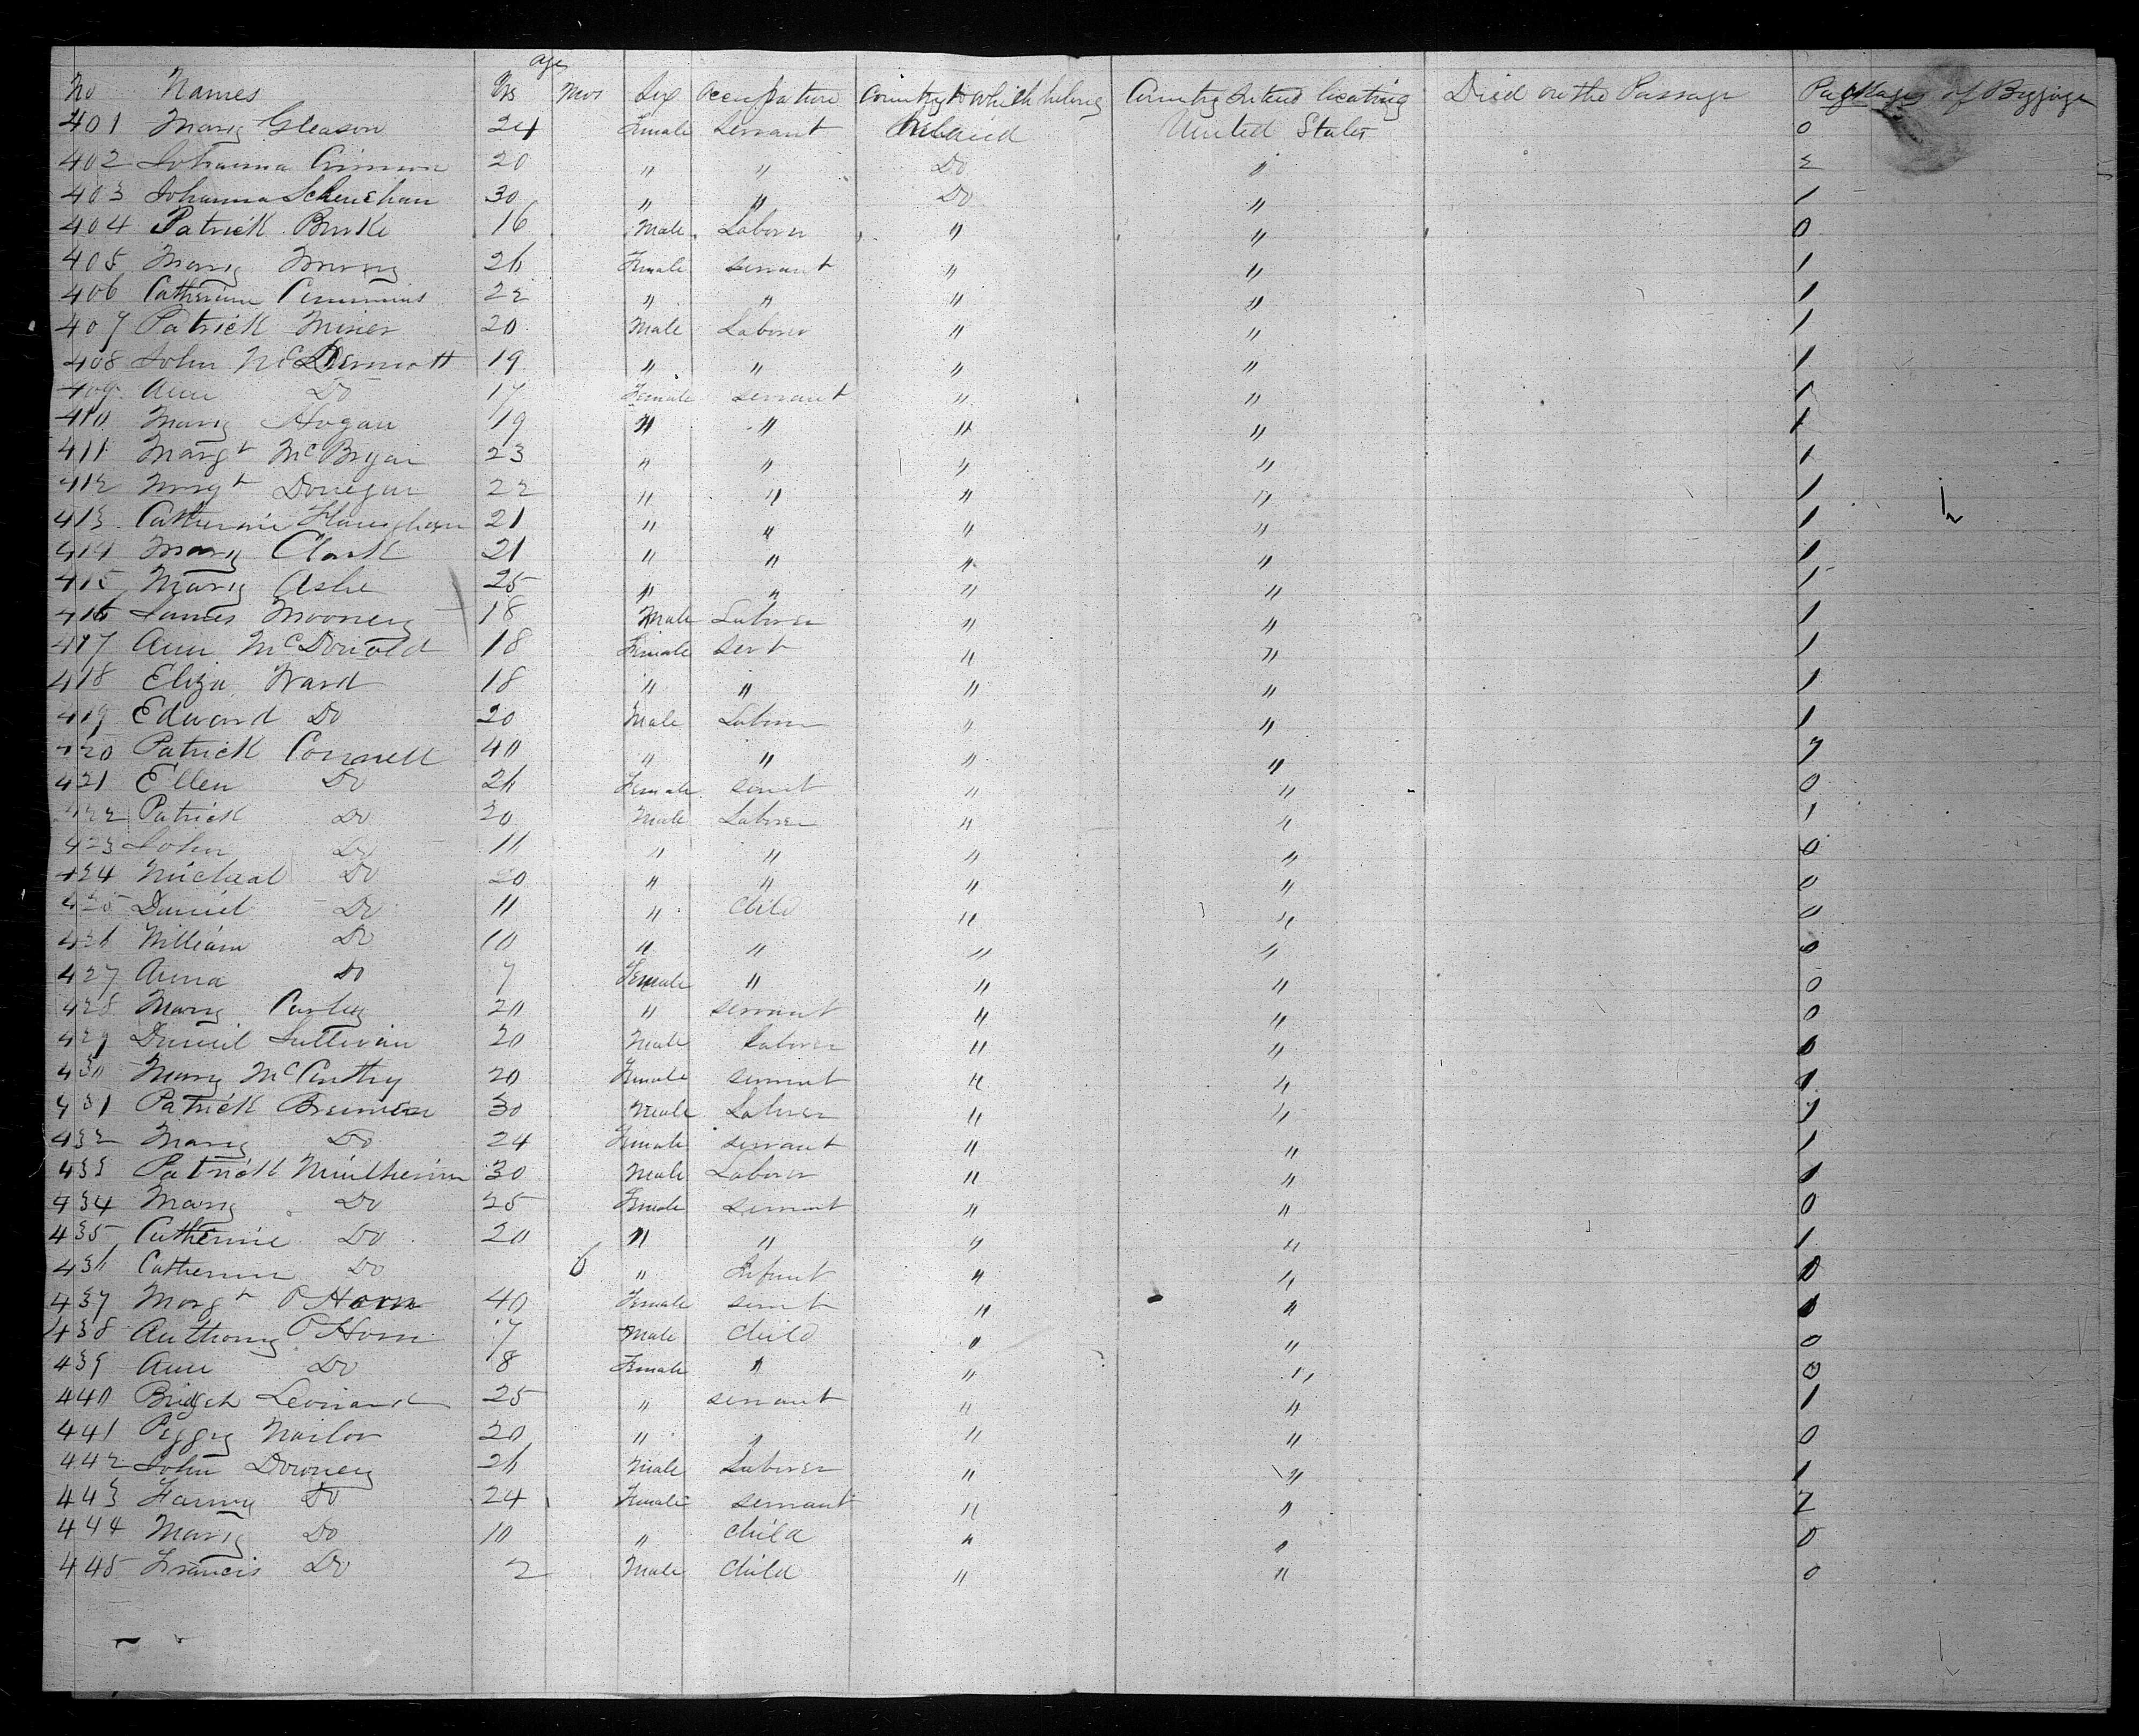 age
No Names Yrs Mos Sex Occupation Country to which belong Country Intend locating Died on the Passage Packages of Baggage
401 Mary Gleason 24 Female Servant Ireland United States 0
402 Johanna 20 " " Do " 2
403 Johanna 30 " " Do " 1
404 Patrick Burke 16 Male Laborer " " 0
405 Mary 26 Female servant " " 1
406 Catherine Cummins 22 " " " " 1
407 Patrick 20 Male Laborer " " 1
408 John McDermott 19 " " " " 1
409 Ann Do 17 Female servant " " 1
410 Mary Hogan 19 " " " " 1
411 Margt McBryan 23 " " " " 1
412 Margt Donegan 22 " " " " 1
413 Catherine 21 " " " " 1
414 Mary Clark 21 " " " " 1
415 Mary Ashe 25 " " " " 1
416 James Mooney 18 Male Laborer " " 1
417 Ann McDonald 18 Female Servt " " 1
418 Eliza Ward 18 " " " " 1
419 Edward Do 20 Male Laborer " " 1
420 Patrick Connell 40 " " " " 7
421 Ellen Do 26 Female servt " " 0
422 Patrick Do 20 Male Laborer " " 1
423 John Do 11 " " " " 0
424 Micheal Do 20 " " " " 0
425 Daniel Do 11 " Child " " 0
426 William Do 10 " " " " 0
427 Anna Do 7 Female " " " 0
428 Mary Curley 20 " servant " " 0
429 Daniel Sullivan 20 Male Laborer " " 0
430 Mary McCarthy 20 Female servant " " 1
431 Patrick 30 Male Laborer " " 1
432 Mary Do 24 Female servant " " 1
433 Patrick 30 Male Laborer " " 1
434 Mary Do 25 Female servant " " 0
435 Catherine Do 20 " " " " 1
436 Catherine Do 6 " Infant " " 0
437 Margt O Horn 40 Female servt " "
438 Anthony O Horn 7 Male Child " " 0
439 Ann Do 8 Female " " " 0
440 Leonard 25 " servant " " 1
441 Peggy Nailor 20 " " " " 0
442 John Downey 26 Male Laborer " " 1
443 Fanny Do 24 Female servant " " 2
444 Mary Do 10 " Child " " 0
445 Francis Do 2 Male Child " " 0